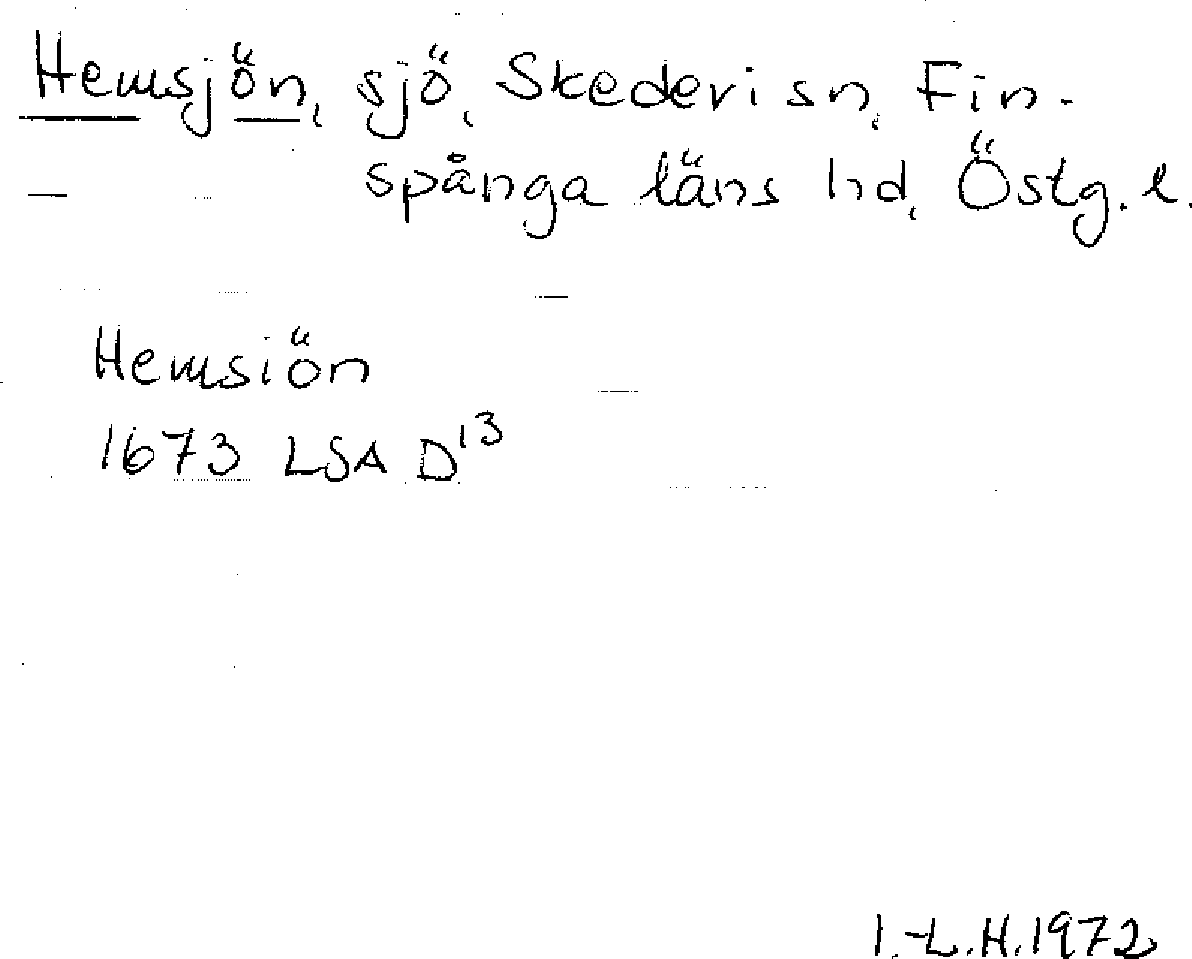 Hemsjön, sjö, Skederi sn, Fin-
spånga läns hd, Östg. l.
Hemsiön
1673 LSA D13
I.-L.H. 1972